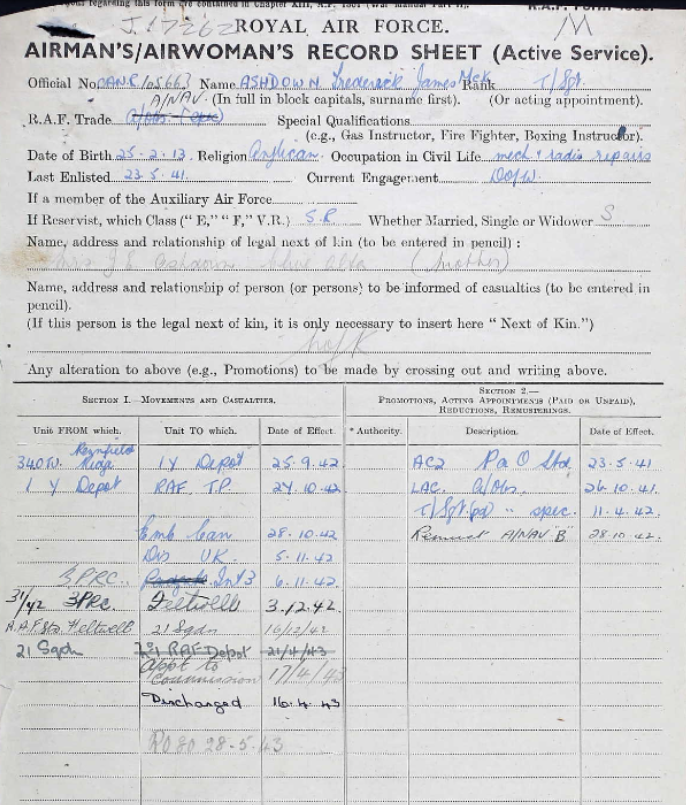 J.17262
M
ROYAL AIR FORCE.
AIRMAN'S/AIRWOMAN'S RECORD SHEET (Active Service).
Official No. CAN.R/105663 Name ASHDOWN Frederick James McK Rank T/Sgt.
A/NAV. (In full in block capitals, surname first). (Or acting appointment).
R.A.F. Trade Special Qualifications
(e.g., Gas Instructor, Fire Fighter, Boxing Instructor).
Date of Birth 25.2.13. Religion Anglican. Occupation in Civil Life mech & radio repairs
Last Enlisted 23.5.41. Current Engagement D of W.
If a member of the Auxiliary Air Force
If Reservist, which Class ("E," "F," V.R.) S.R Whether Married, Single or Widower S
Name, address and relationship of legal next of kin (to be entered in pencil) :
Mrs J E Ashdown Alta (mother)
Name, address and relationship of person (or persons) to be informed of casualties (to be entered in
pencil).
(If this person is the legal next of kin, it is only necessary to insert here " Next of Kin.")
n of K
Any alteration to above (e.g., Promotions) to be made by crossing out and writing above.
SECTION 1.—MOVEMENTS AND CASUALTIES.
SECTION 2.—
PROMOTIONS, ACTING APPOINTMENTS (PAID OR UNPAID),
REDUCTIONS, REMUSTERINGS.
Unit FROM which. Unit TO which. Date of Effect. * Authority. Description. Date of Effect.
1 Y Depot 25.9.42 AC2 P a O Std 23.5.41
1 Y Depot RAF. T.P. 27.10.42 LAC. A/Obs. 26.10.41.
T/Sgt.(pd) " spec. 11.4.42.
Emb Can 28.10.42 Remust A/NAV "B" 28.10.42.
Dis UK. 5.11.42
3 PRC. Int 3 6.11.42.
31/42 3PRC. Feltwell 3.12.42.
R.A.F. Stn. Feltwell 21 Sqdn 16/12/42
21 Sqdn No 1 RAF Depot 21/4/43
Appt to
Commission 17/4/43
Discharged 16.4.43
RO 80 28-5-43